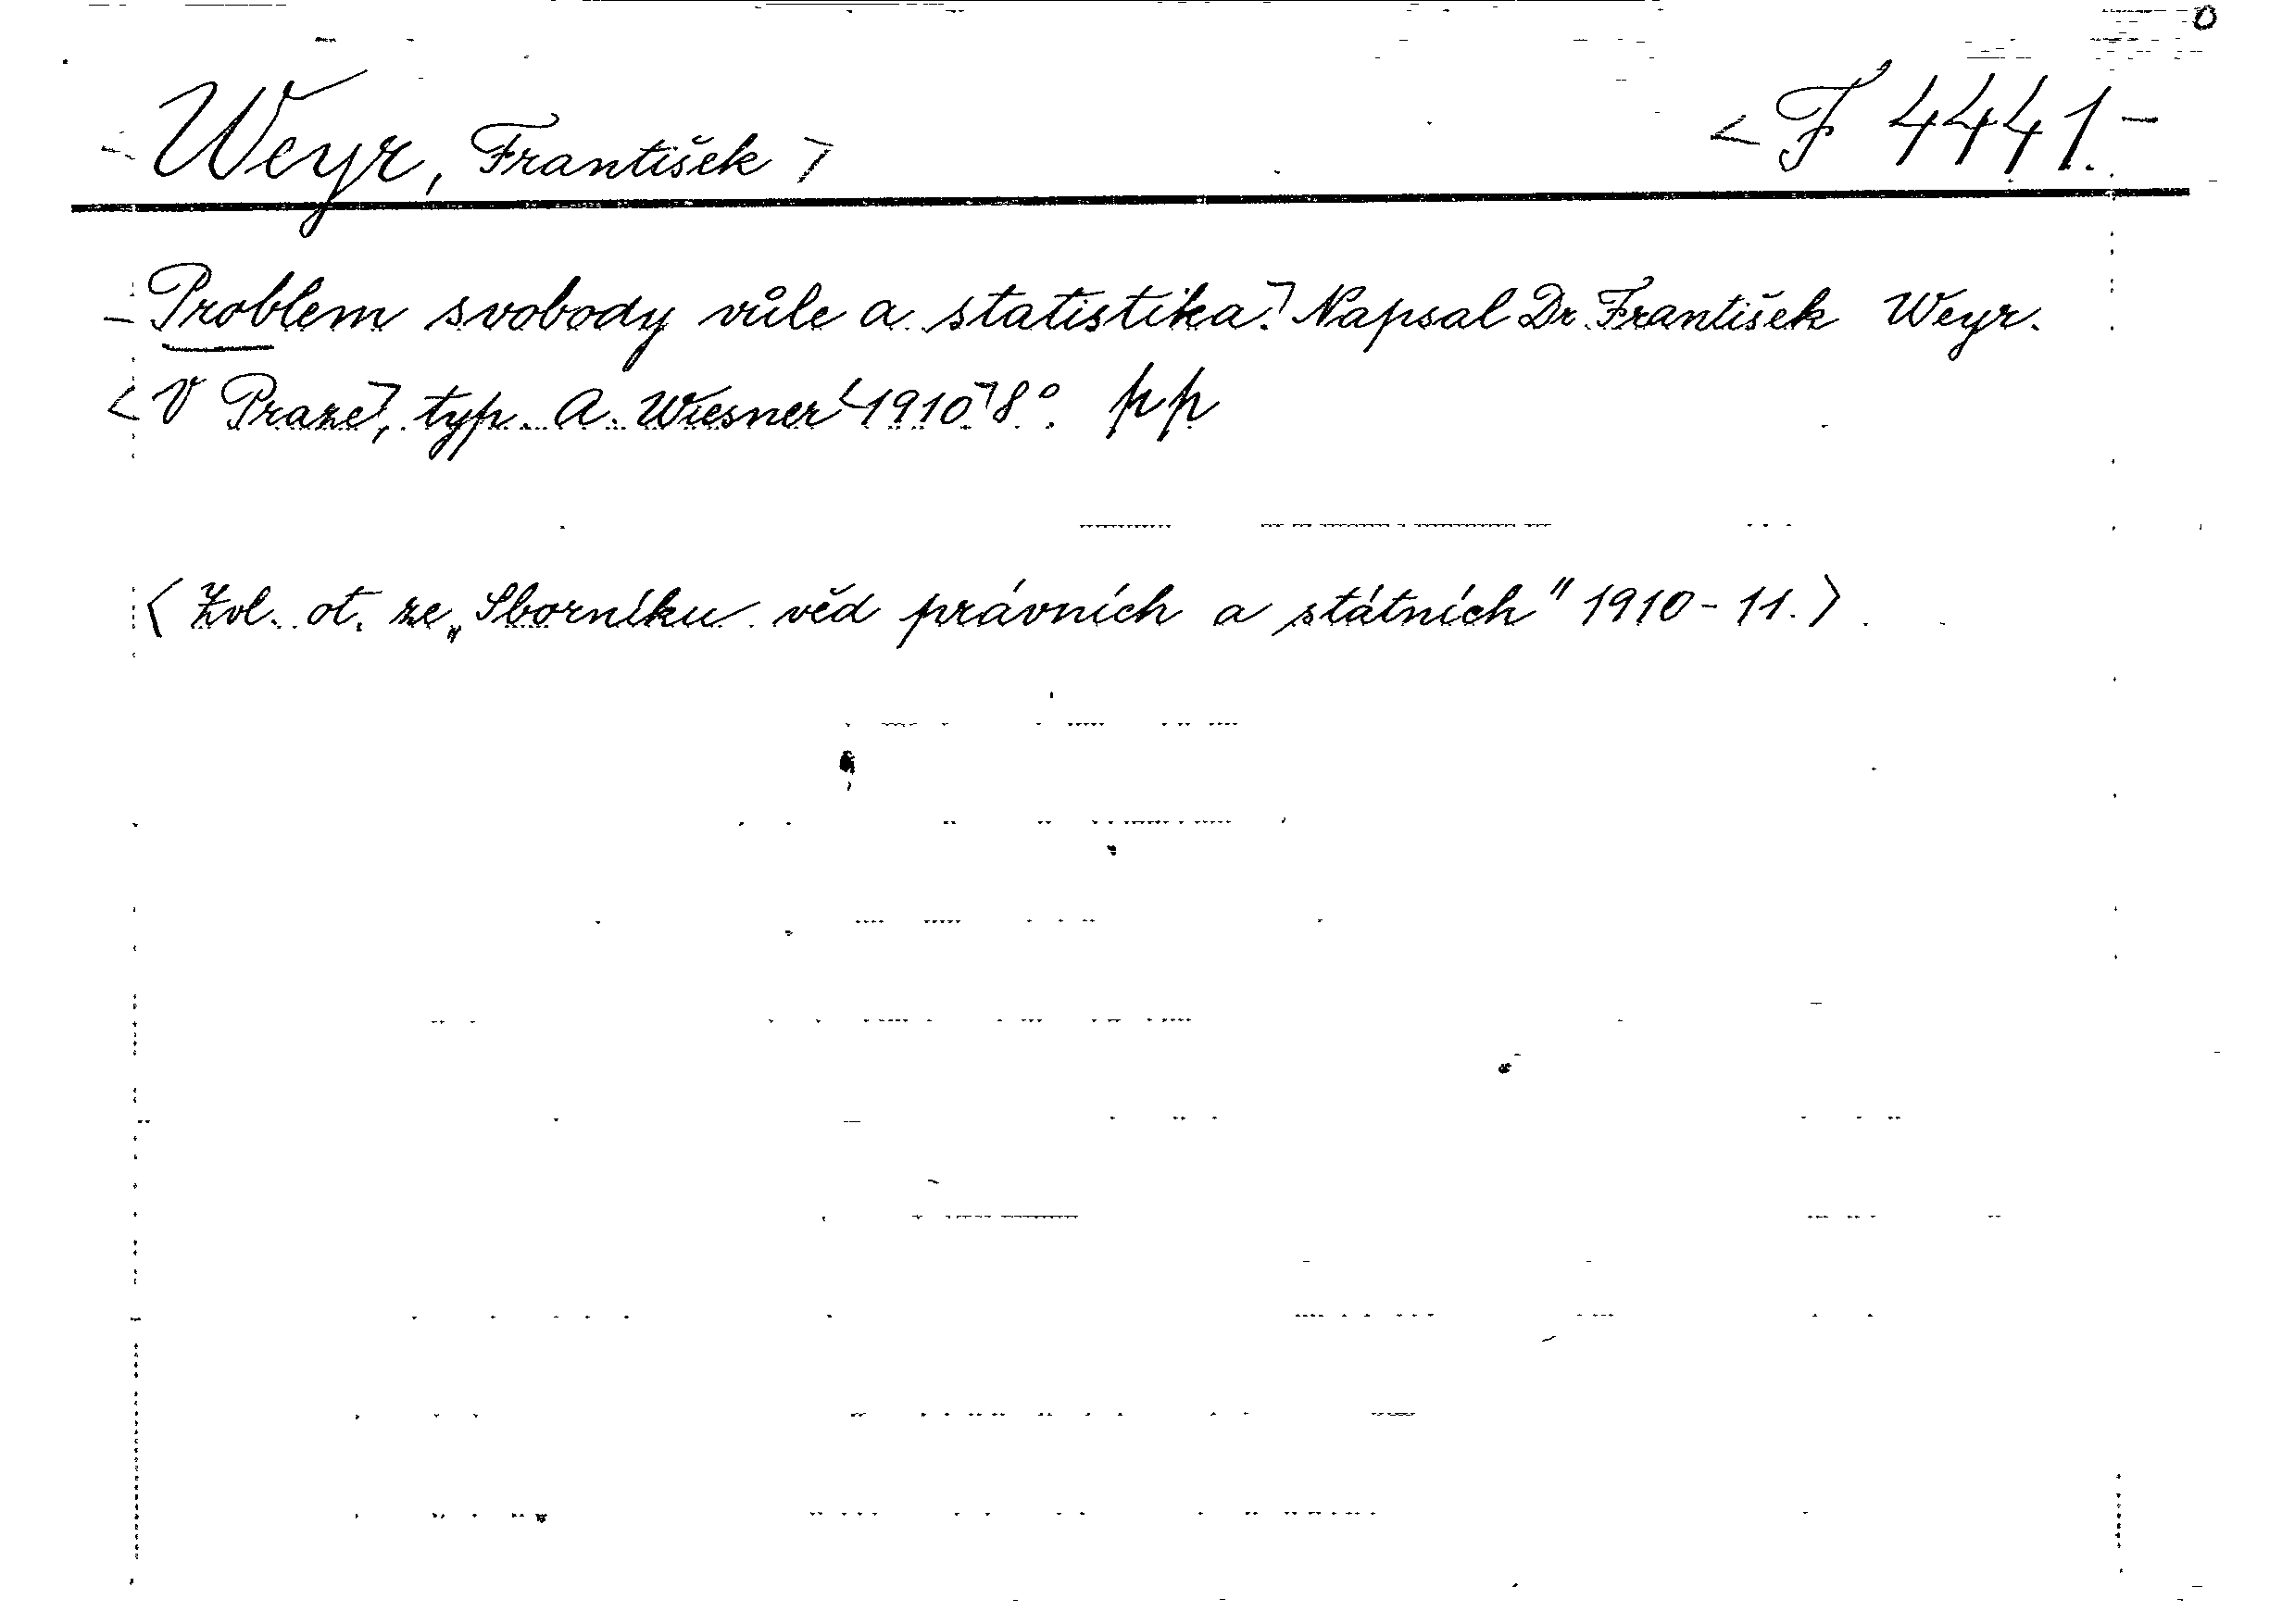 Weyr, František F 4441.
Problem svobody vůle a statistika. Napsal Dr. František Weyr.
V Praze, typ. A. Wiesner 1910 8° pp
(Zvl. ot. ze „Sborníku věd právních a státních" 1910-11.)